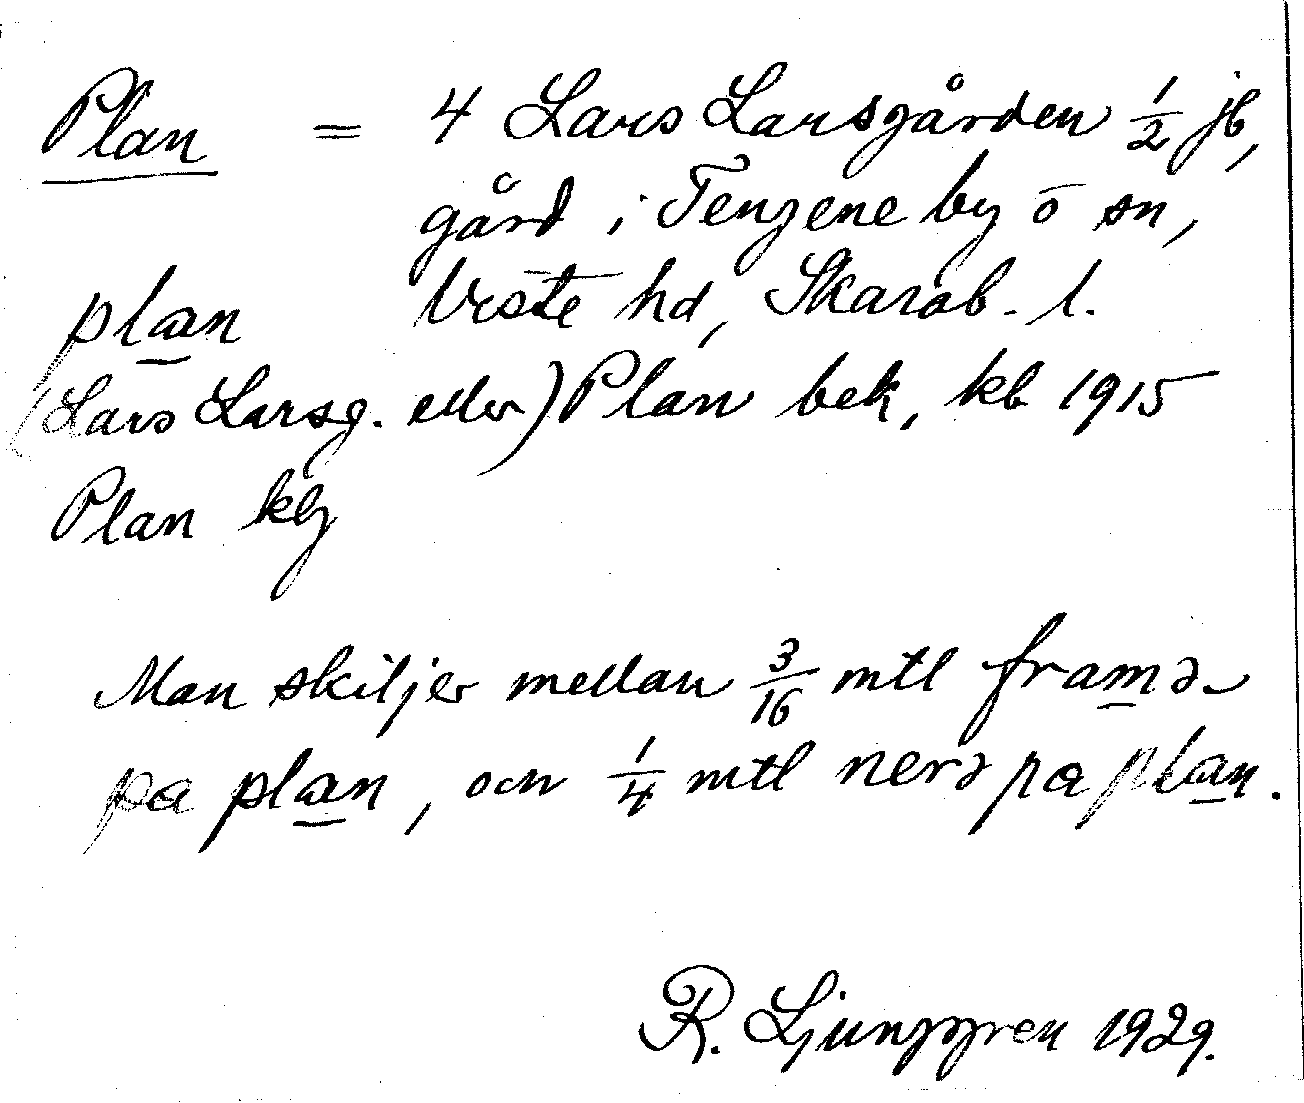 Plan = 4 Lars Larsgården 1/2 jb,
gård i Tengene by o sn,
Viste hd, Skarab. l.
plan
(Lars Larsg. eller) Plan bek, kb 1915
Plan kbg
Man skiljer mellan 3/16 mtl framə
pa plan, och 1/4 mtl nerə pa plan.
R. Ljunggren 1929.